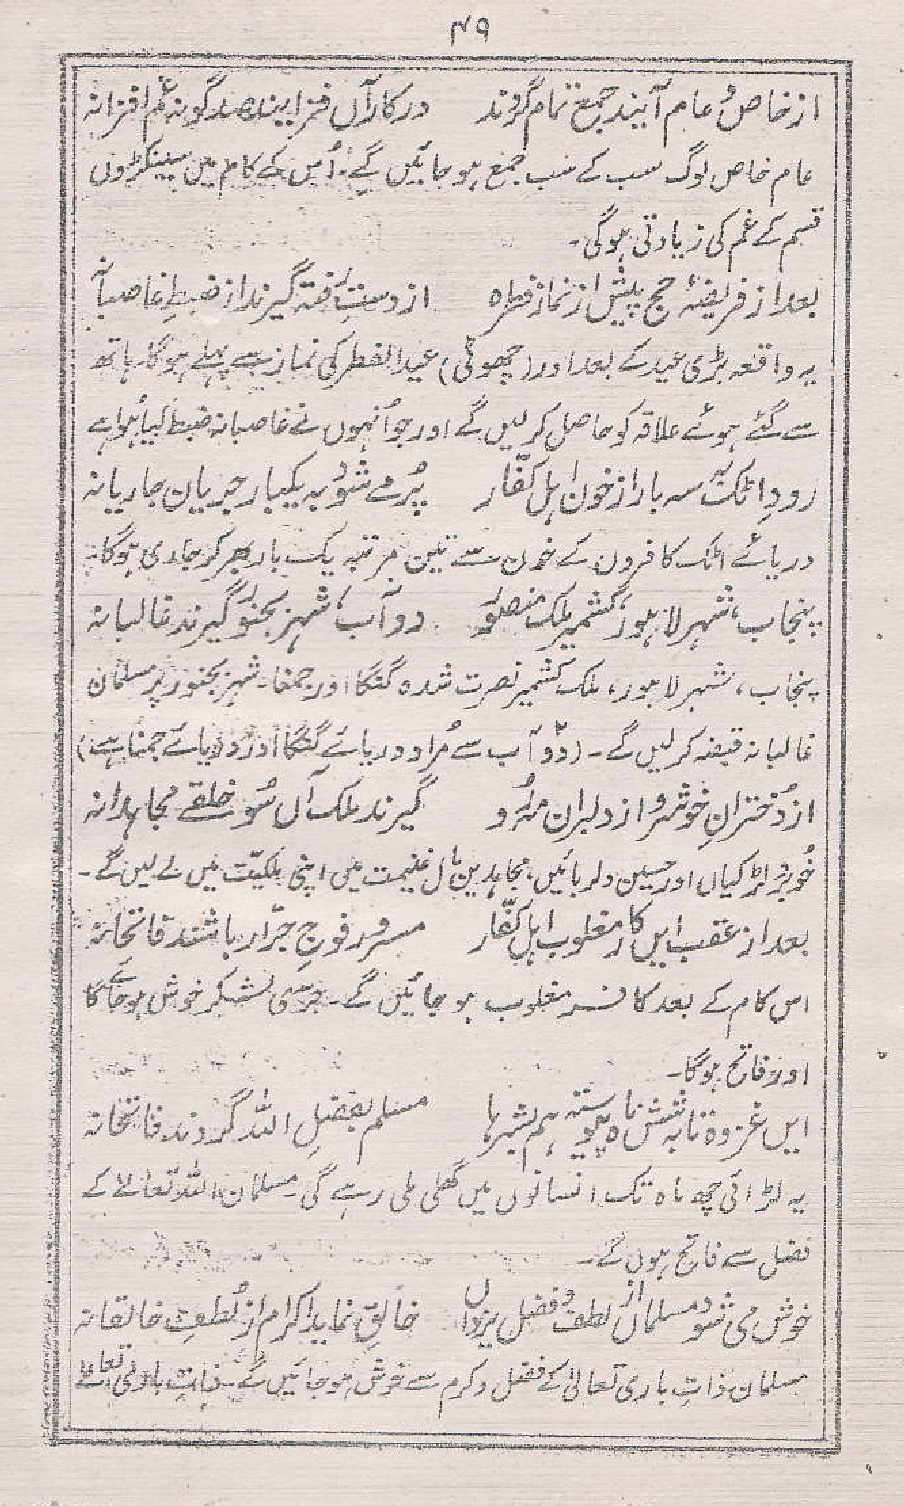 ۴۹
از خاص و عام آیند جمع تمام گردند در کار آں فزایند صد گونہ غم افزانہ
عام خاص لوگ سب کے سب جمع ہو جائیں گے۔ اُس کے کام میں سینکڑوں
قسم کے غم کی زیادتی ہوگی۔
بعد از فریضۂ حج پیش از نماز فطرہ از دستِ رفتہ گیرند از ضبطِ غاصبانہ
یہ واقعہ بڑی عید کے بعد اور (چھوٹی) عید الفطر کی نماز سے پہلے ہوگا۔ ہاتھ
سے گئے ہوئے علاقہ کو حاصل کرلیں گے اور جو اُنہوں نے غاصبانہ ضبط کیا ہوا ہے
رودِ اٹک نہ سہ بار از خون اہل کفّار پُر مے شود بہ یکبار جریان جاریانہ
دریائے اٹک کافروں کے خون سے تین مرتبہ یک بار بھر کر جاری ہوگا۔
پنجاب، شہر لاہور، کشمیر ملک منصور دو آب، شہر بجنور گیرند غالبانہ
پنجاب، شہر لاہور، ملک کشمیر نصرت شدہ گنگا اور جمنا۔ شہر بجنور پر مسلمان
غالبانہ قبضہ کرلیں گے۔ (دو آب سے مُراد دریائے گنگا اور دریائے جمنا ہے)
از دُخترانِ خوشرو از دلبران مہ رُو گیرند ملک آں سُو خلقے مجاہدانہ
خُوبرو لڑکیاں اور حسین دلربائیں، مجاہدین مالِ غنیمت میں اپنی ملکیّت میں لے لیں گے۔
بعد از عقب ایں کار مغلوب اہل کفّار مسرور فوجِ جرّار باشند فاتحانہ
اس کام کے بعد کافر مغلوب ہو جائیں گے۔ جرسی لشکر خوش ہو جائے گا
اور فاتح ہوگا۔
ایں غزوہ تا بہ شش ماہ پیوستہ ہم بشرہا مسلم بفضلِ اللہ گردند فاتحانہ
یہ لڑائی چھ ماہ تک انسانوں میں گھلی ملی رہے گی۔ مسلمان اللہ تعالےٰ کے
فضل سے فاتح ہوں گے۔
خوش می شود مسلماں از لطف و فضل یزداں خالق نماید اکرام از لُطفِ خالقانہ
مسلمان ذاتِ باری تعالیٰ کے فضل و کرم سے خوش ہو جائیں گے۔ ذاتِ باری تعالےٰ